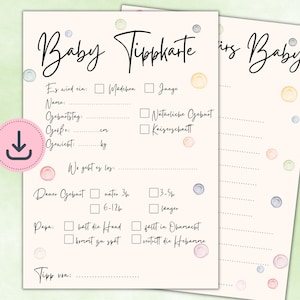 Baby Tippkarte
Es wird ein: Mädchen Junge
Name:
Geburtstag: Natürliche Geburt
Größe: cm Kaiserschnitt
Gewicht: kg
Wo geht es los:
Dauer Geburt unter 3h 3-5h
6-12h länger
Papa: hält die Hand fällt in Ohnmacht
kommt zu spät verteilt die Hebamme
Tipp von:
ürs Baby